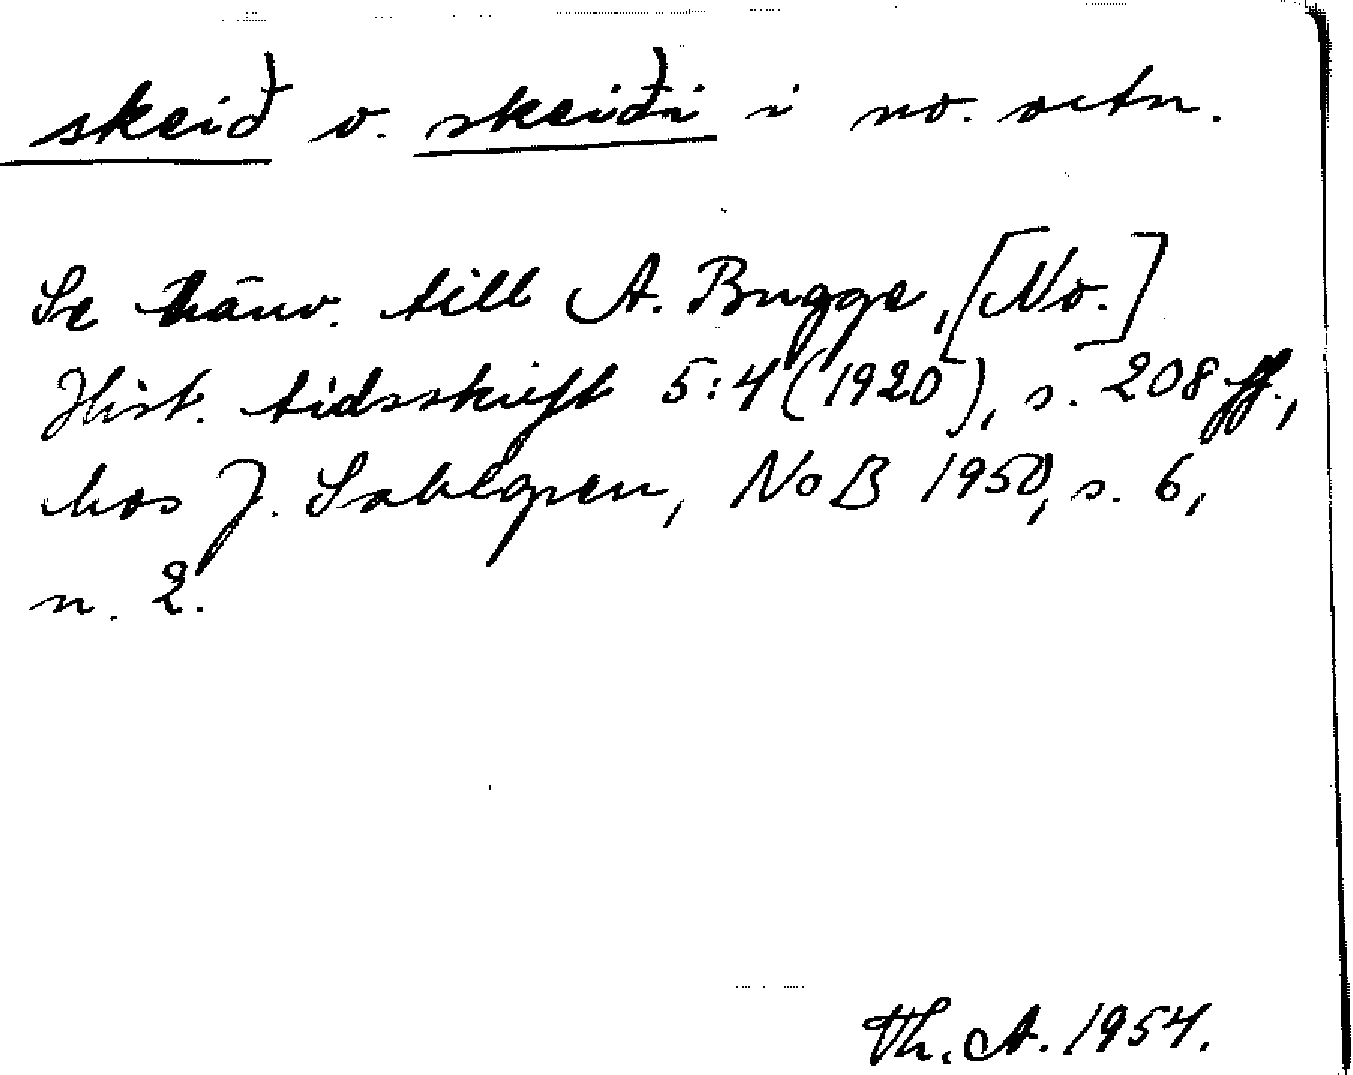 skeið o. skeiði i no. ortn.
Se hänv. till A. Bugge, [No.]
Hist. tidsskrift 5:4 (1920), s. 208 ff.,
hos J. Sahlgren, NoB 1950, s. 6,
n. 2.
Th. A. 1954.